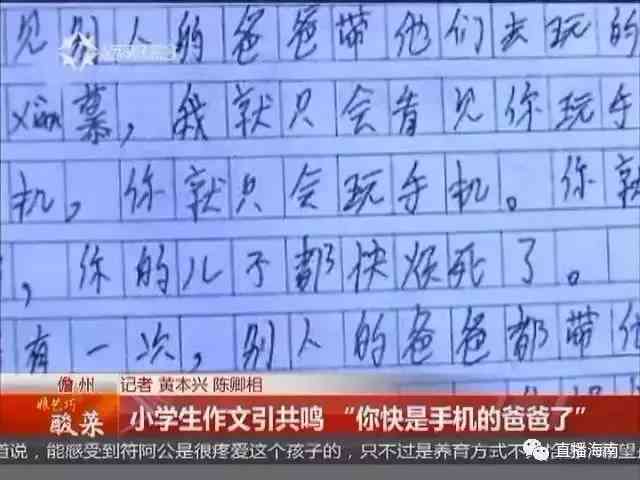 见别人的爸爸带他们去玩的
慕，我就只会看见你玩手
机，你就只会玩手机。你就
，你的儿子都快烦死了。
有一次，别人的爸爸都带他
儋州
记者 黄本兴 陈卿相
酸菜
小学生作文引共鸣 “你快是手机的爸爸了”
道说，能感受到符阿公是很疼爱这个孩子的，只不过是养育方式不
直播海南